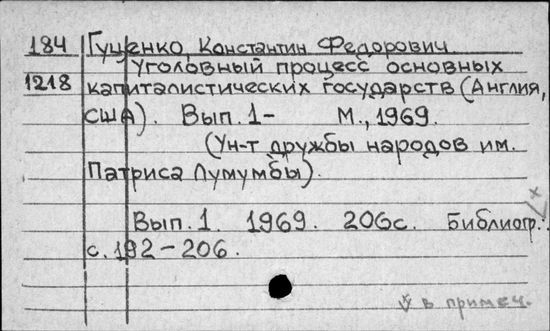 184 Гуценко, Константин Федорович.
1218 Уголовный процесс основных
капиталистических государств (Англия,
США). Вып. 1- М., 1969.
(Ун-т дружбы народов им.
Патриса Лумумбы).
Вып. 1. 1969. 206с. Библиогр.:
с. 192-206.
в примеч.